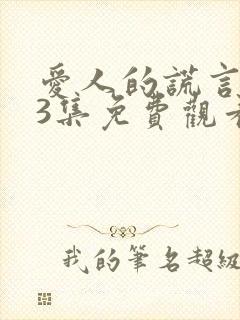 愛人的謊言
3集免費觀看
我的筆名超級